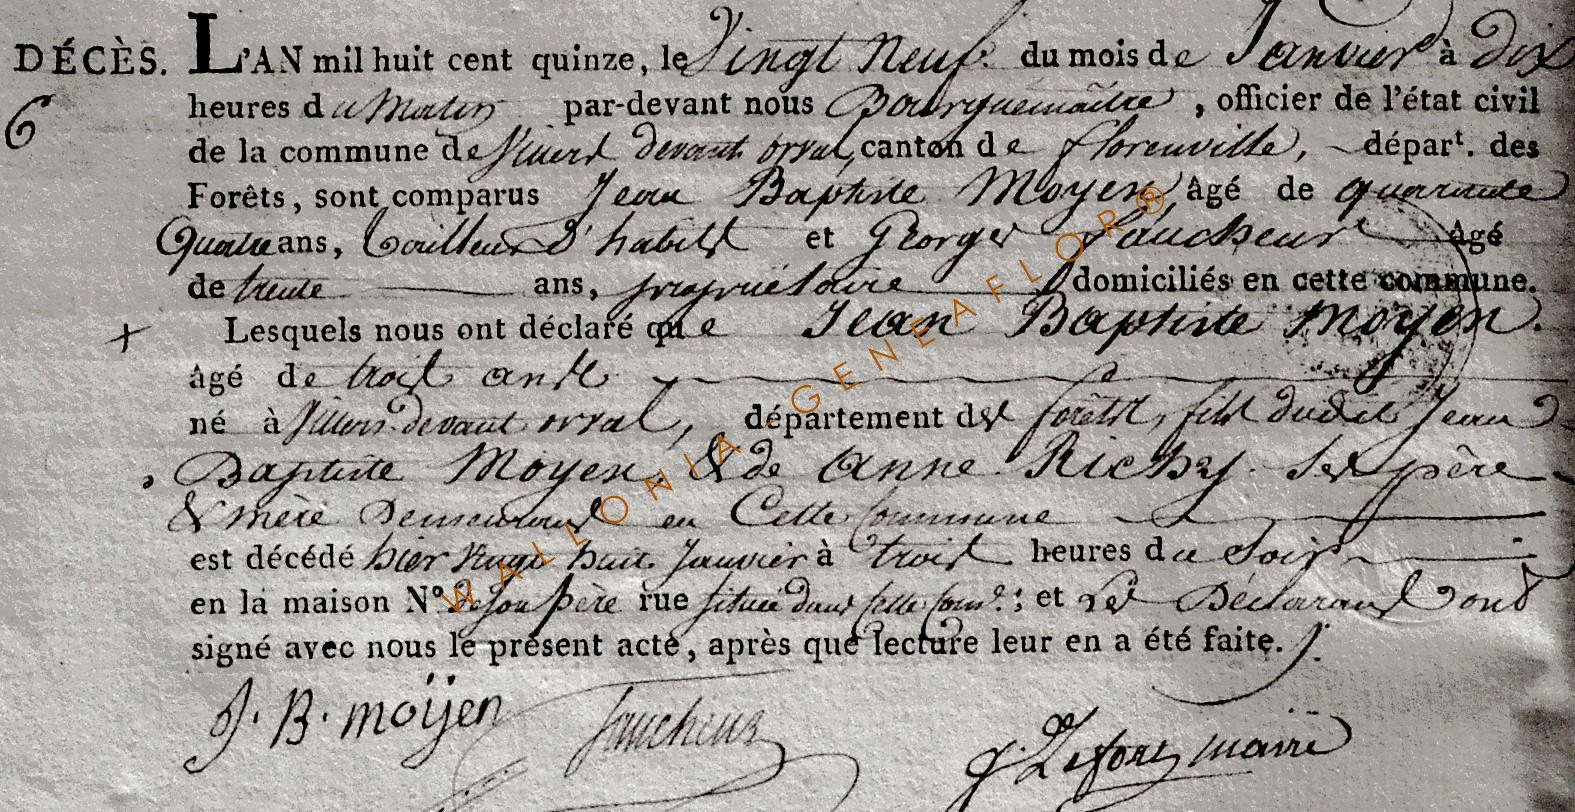 DÉCÈS. L'AN mil huit cent quinze, le Vingt Neuf. du mois de Janvier à dix
6 heures du Matin par-devant nous Bourguemaitre, officier de l'état civil
de la commune de Villers devant orval, canton de florenville, départ. des
Forêts, sont comparus Jean Baptiste Moyen, âgé de quarante
Quatre ans, tailleur d'habits et George faucheur âgé
de trente ans, propriétaire domiciliés en cette commune.
+ Lesquels nous ont déclaré que Jean Baptiste Moyen.
âgé de trois ans
né à Villers devant orval, département des forêts, fils dudit Jean
Baptiste Moyen, & de Anne Richy. Ses père
& mère Demeurant en Cette Commune
est décédé hier vingt huit Janvier à trois heures du Soir
en la maison N° de son père rue située dans Cette Com.e; et les Déclarans ont
signé avec nous le présent acte, après que lecture leur en a été faite.
J. B. moÿen faucheur J. Lefort maire
WALLONIA-GENEAFLOR®